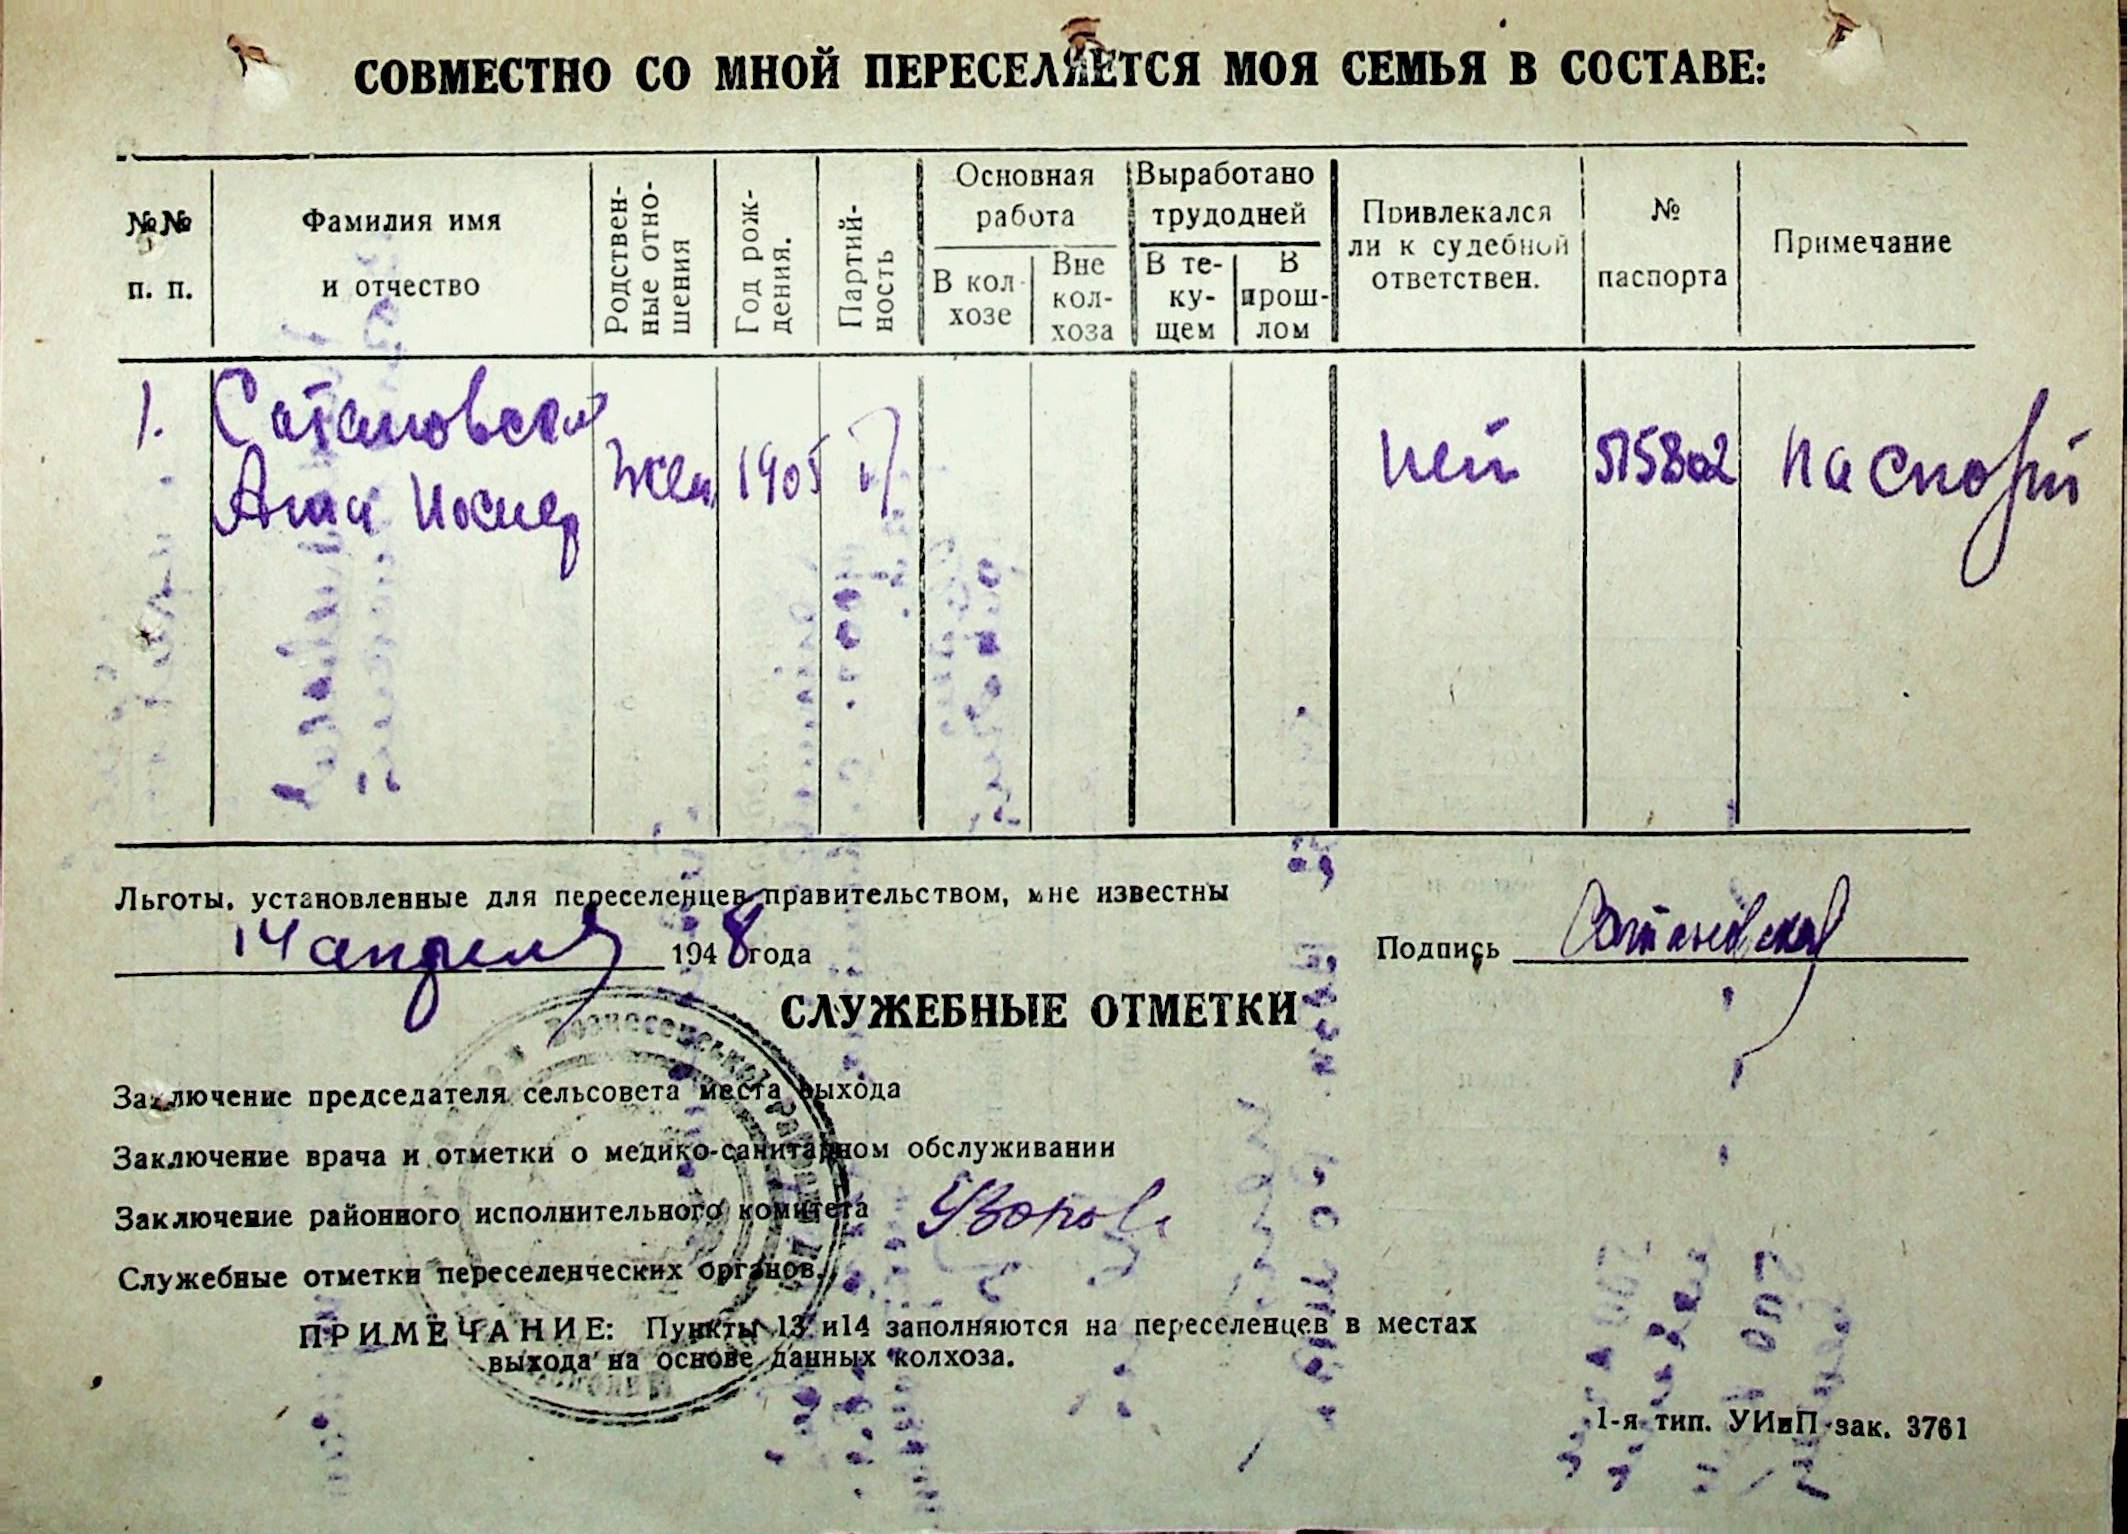 СОВМЕСТНО СО МНОЙ ПЕРЕСЕЛЯЕТСЯ МОЯ СЕМЬЯ В СОСТАВЕ:
№№ п. п.
Фамилия имя и отчество
Родствен-ные отно-шения
Год рож-дения.
Партий-ность
Основная работа
В кол-хозе
Вне кол-хоза
Выработано трудодней
В те-ку-щем
В прош-лом
Привлекался ли к судебной ответствен.
№ паспорта
Примечание
1. Сатановская
Анна Иосиф жен 1905 б/п нет 515802 паспорт
Льготы, установленные для переселенцев правительством, мне известны
14 апреля 1948 года
Подпись Сатановская
СЛУЖЕБНЫЕ ОТМЕТКИ
Заключение председателя сельсовета места выхода
Заключение врача и отметки о медико-санитарном обслуживании
Заключение районного исполнительного комитета
Служебные отметки переселенческих органов.
ПРИМЕЧАНИЕ: Пункты 13 и 14 заполняются на переселенцев в местах
выхода на основе данных колхоза.
1-я тип. УИиП зак. 3761